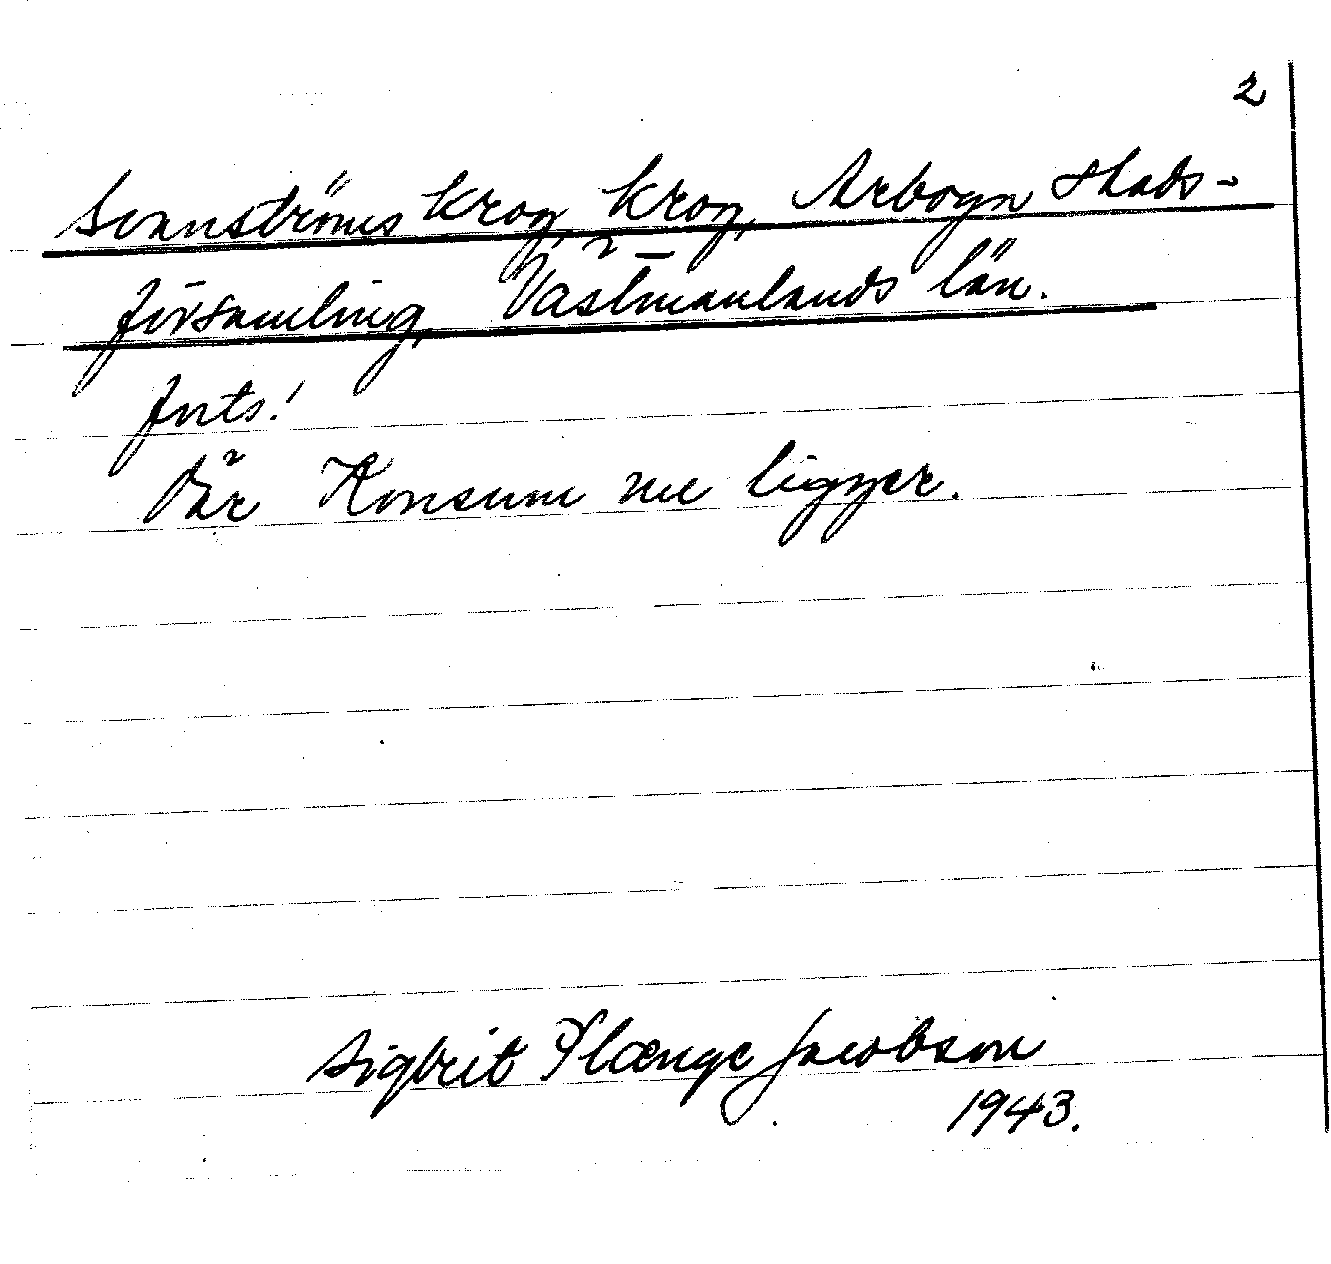 2
Svanströms krog, krog, Arboga stads-
församling, Västmanlands län.
forts.!
Där Konsum nu ligger.
Sigbrit Plænge Jacobson
1943.